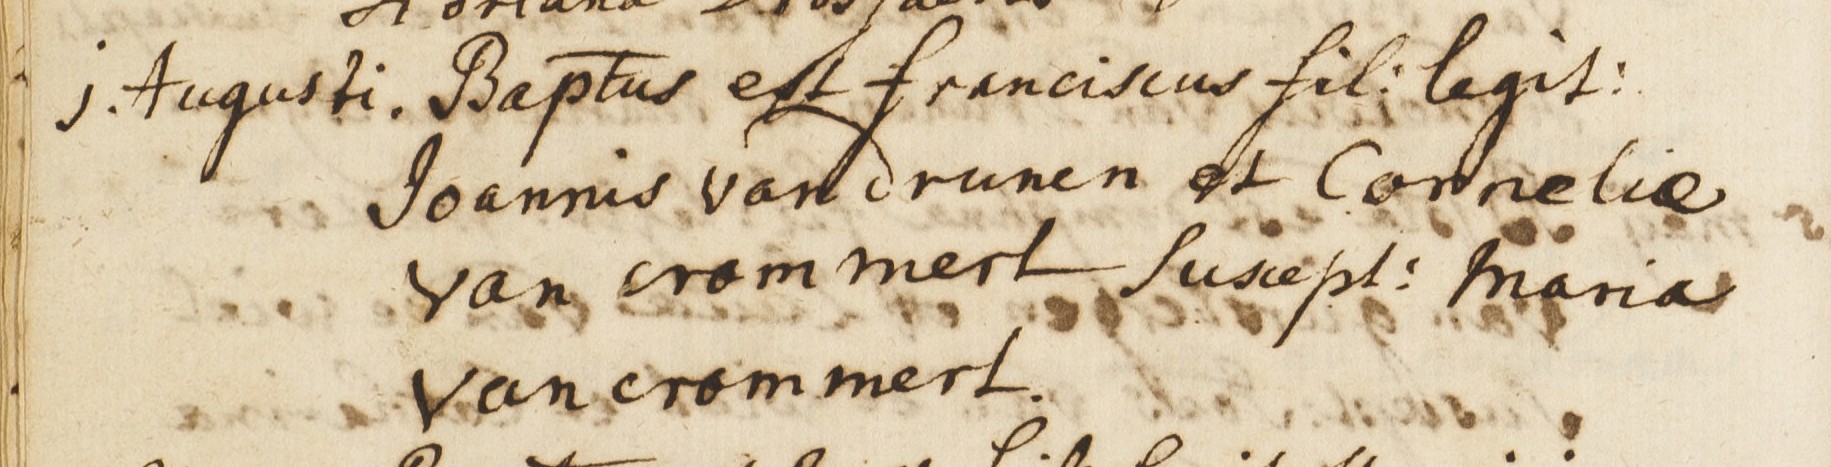 j. Augusti. Baptus est franciscus fil: legit:
Joannis van drunen et Corneliæ
van crommert Suscept: Maria
van crommert.